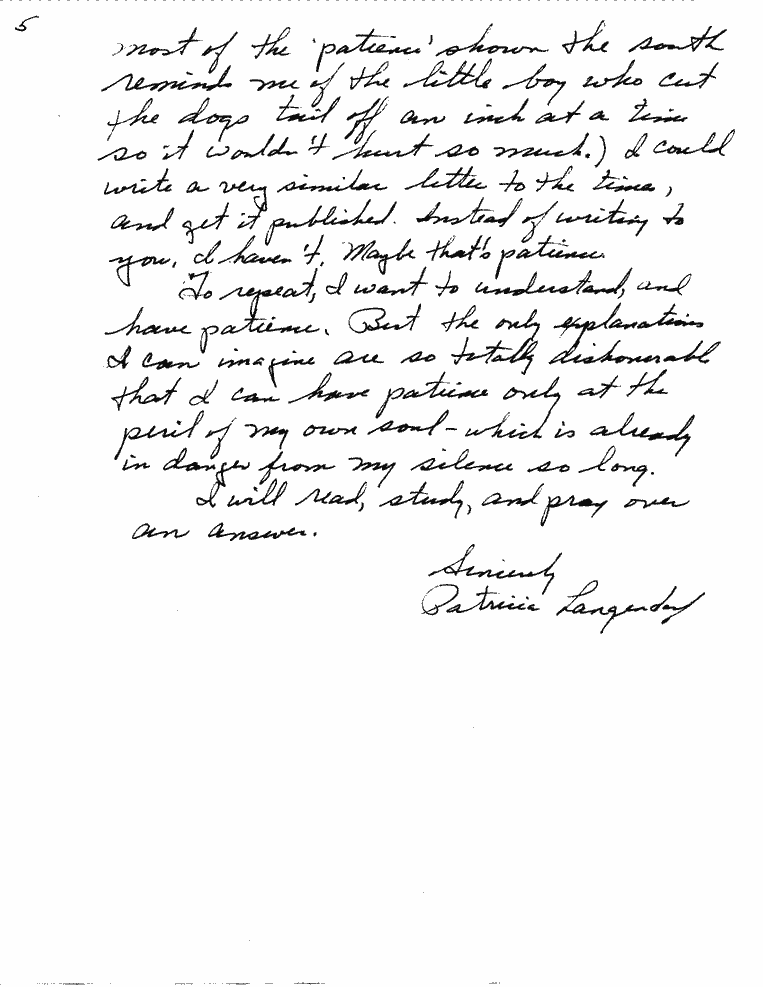 5
most of the 'patience' shown the south
reminds me of the little boy who cut
the dogs tail off an inch at a time
so it wouldn't hurt so much.) I could
write a very similar letter to the times,
and get it published. Instead of writing to
you, I haven't. Maybe that's patience.
To repeat, I want to understand, and
have patience. But the only explanations
I can imagine are so totally dishonorable
that I can have patience only at the
peril of my own soul - which is already
in danger from my silence so long.
I will read, study, and pray over
an answer.
Sincerely
Patricia Langendorf